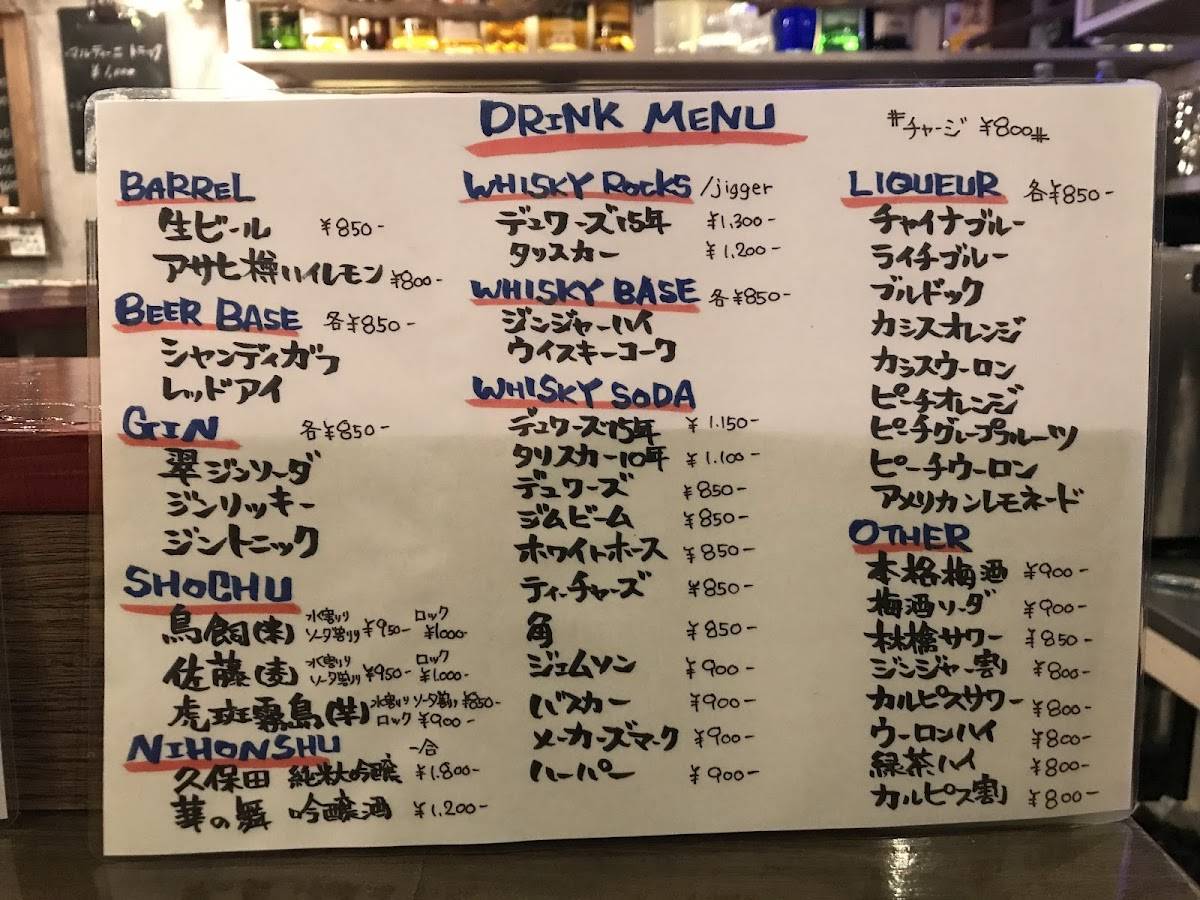 マルティーニ トニック
¥1,000
DRINK MENU
#チャージ ¥800#
BARREL
生ビール ¥850-
アサヒ樽ハイレモン ¥800-
BEER BASE 各¥850-
シャンディガフ
レッドアイ
GIN 各¥850-
翠ジンソーダ
ジンリッキー
ジントニック
SHOCHU
鳥飼(米) 水割り ソーダ割り ¥950- ロック ¥1000-
佐藤(麦) 水割り ソーダ割り ¥950- ロック ¥1,000-
虎斑霧島(芋) 水割り ソーダ割り ¥850-
ロック ¥900-
NIHONSHU 一合
久保田 純米大吟醸 ¥1.800-
華の舞 吟醸酒 ¥1,200-
WHISKY ROCKS /jigger
デュワーズ15年 ¥1.300-
タリスカー ¥1.200-
WHISKY BASE 各¥850-
ジンジャーハイ
ウイスキーコーク
WHISKY SODA
デュワーズ15年 ¥1.150-
タリスカー10年 ¥1.100-
デュワーズ ¥850-
ジムビーム ¥850-
ホワイトホース ¥850-
ティーチャーズ ¥850-
角 ¥850-
ジェムソン ¥900-
バスカー ¥900-
メーカーズマーク ¥900-
ハーパー ¥900-
LIQUEUR 各¥850-
チャイナブルー
ライチブルー
ブルドック
カシスオレンジ
カシスウーロン
ピーチオレンジ
ピーチグレープフルーツ
ピーチウーロン
アメリカンレモネード
OTHER
本格梅酒 ¥900-
梅酒ソーダ ¥900-
林檎サワー ¥850-
ジンジャー割 ¥800-
カルピスサワー ¥800-
ウーロンハイ ¥800-
緑茶ハイ ¥800-
カルピス割 ¥800-